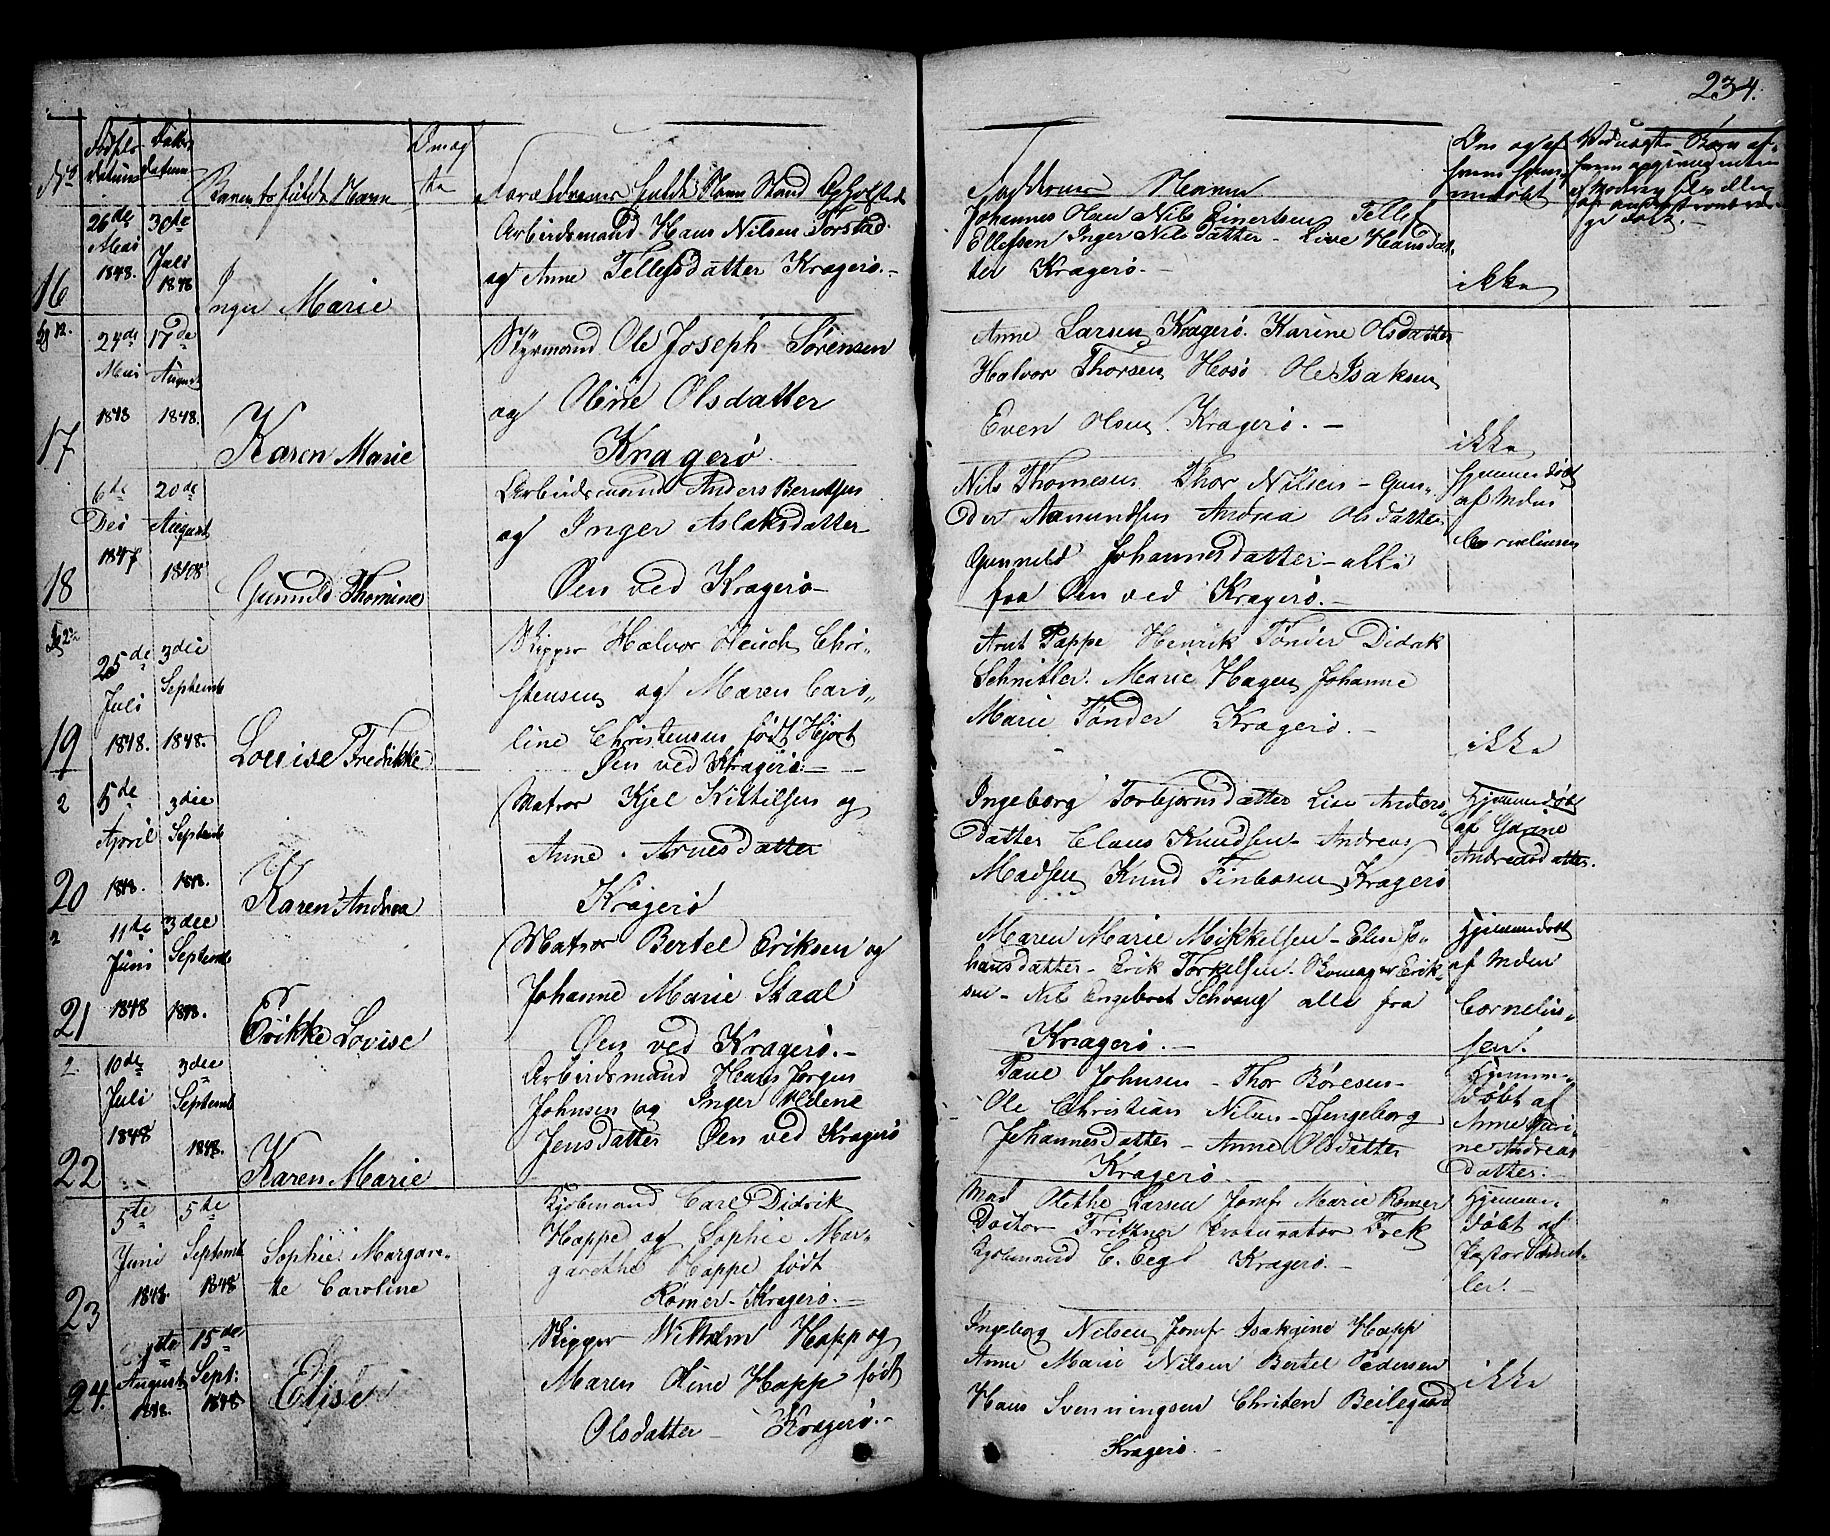 234.
No
Fødsels datum
Daabs datum
Barnets fulde Navn
Forældrenes fulde Navn Stand og Opholsted
Faddernes Navne
Om og af hvem hjemmedøbt
16
26de Mai 1848.
30de Juli 1848
Inger Marie
Arbeidsmand Hans Nilsen Torstad
og Anne Tellefsdatter Kragerø. -
Johannes Olsen Nils Einertsen Tellef
Ellefsen Inger Nilsdatter - Live Hansdat-
ter Kragerø. -
ikke
17
24de Mai 1848
17de August 1848.
Karen Marie
Styrmand Ole Joseph Sørensen
og Oline Olsdatter
Kragerø.
Anne Larsen Kragerø. Karine Olsdatter
Halvor Thorsen Hosø Ole Isaksen
Even Olsen. Kragerø. -
ikke
18
6te Des 1847
20de August 1848
Gunnild Thomine
Arbeidsmand Anders Berntsen
og Inger Aslaksdatter
Øen ved Kragerø -
Nils Thomesen Thor Nilsen - Gun-
der Aamundsen Andrea Olsdatter
Gunnild Johannesdatter - alle
fra Øen ved Kragerø. -
Hjemmedøbt
af Madm
Corneliusen
19
25de Juli 1848.
3die Septemb 1848.
Lovise Fredrikke -
Skipper Halvor Heuch Chri-
stensen og Maren Caro-
line Christensen født Hjort
Øen ved Kragerø. -
Arnt Pappe Henrik Tønder Didrik
Schnitler. Marie Hagen Johanne
Marie Tønder Kragerø. -
ikke
2
20
5de April 1848.
3die Septemb 1848.
Karen Andrea
Matros Kjel Kittilsen og
Anne Arnesdatter
Kragerø
Ingeborg Torbjørnsdatter Lise Anders-
datter Claus Knudsen - Andreas
Madsen Knud Finbosen Kragerø
Hjemmedøbt
af Gurine
Andreasdatter.
2
21
11te Juni 1848
3die Septemb 1848.
Erikke Lovise
Matros Bertel Eriksen og
Johanne Marie Skaal
Øen ved Kragerø. -
Maren Marie Mikkelsen - Elise Jo-
hansdatter - Erik Torkelsen - Romager Erik-
sen - Nils Engebret Schvang alle fra
Kragerø. -
Hjemmedøbt
af Madm
Cornelius-
sen.
2
22
10de Juli 1848
3die Septemb 1848.
Karen Marie
Arbeidsmand Hans Jørgen
Johnsen og Inger Helene
Jensdatter Øen ved Kragerø
Paul Johnsen - Thor Børesen -
Ole Christian Nilsen - Jengeborg
Johannesdatter - Anne Olsdatter
Kragerø
Hjemme-
døbt af
Anne Guri-
ne Andreas
datter. -
23
5te Juni 1848
5te Septemb 1848
Sophie Margare-
the Caroline
Kjøbmand Carl Didrik
Happe og Sophie Mar-
garethe Happe født
Romer - Kragerø. -
Mad Olethe Larsen Jomf Marie Romer
Doctor Frithner Procurator Fock
Kjøbmand C. Eegl Kragerø. -
Hjemme-
døbt af
Pastor Schnit-
ler. -
24.
August 1848.
15de Sept: 1848
Elise
Skipper Wilhelm Happ og
Maren Oline Happ født
Olsdatter - Kragerø. -
Ingeborg Nilsen Jomfr Isakine Happ
Anne Marie Nilsen Bertel Pedersen
Hans Svenningsen Christen Beilegaard
Kragerø. -
ikke